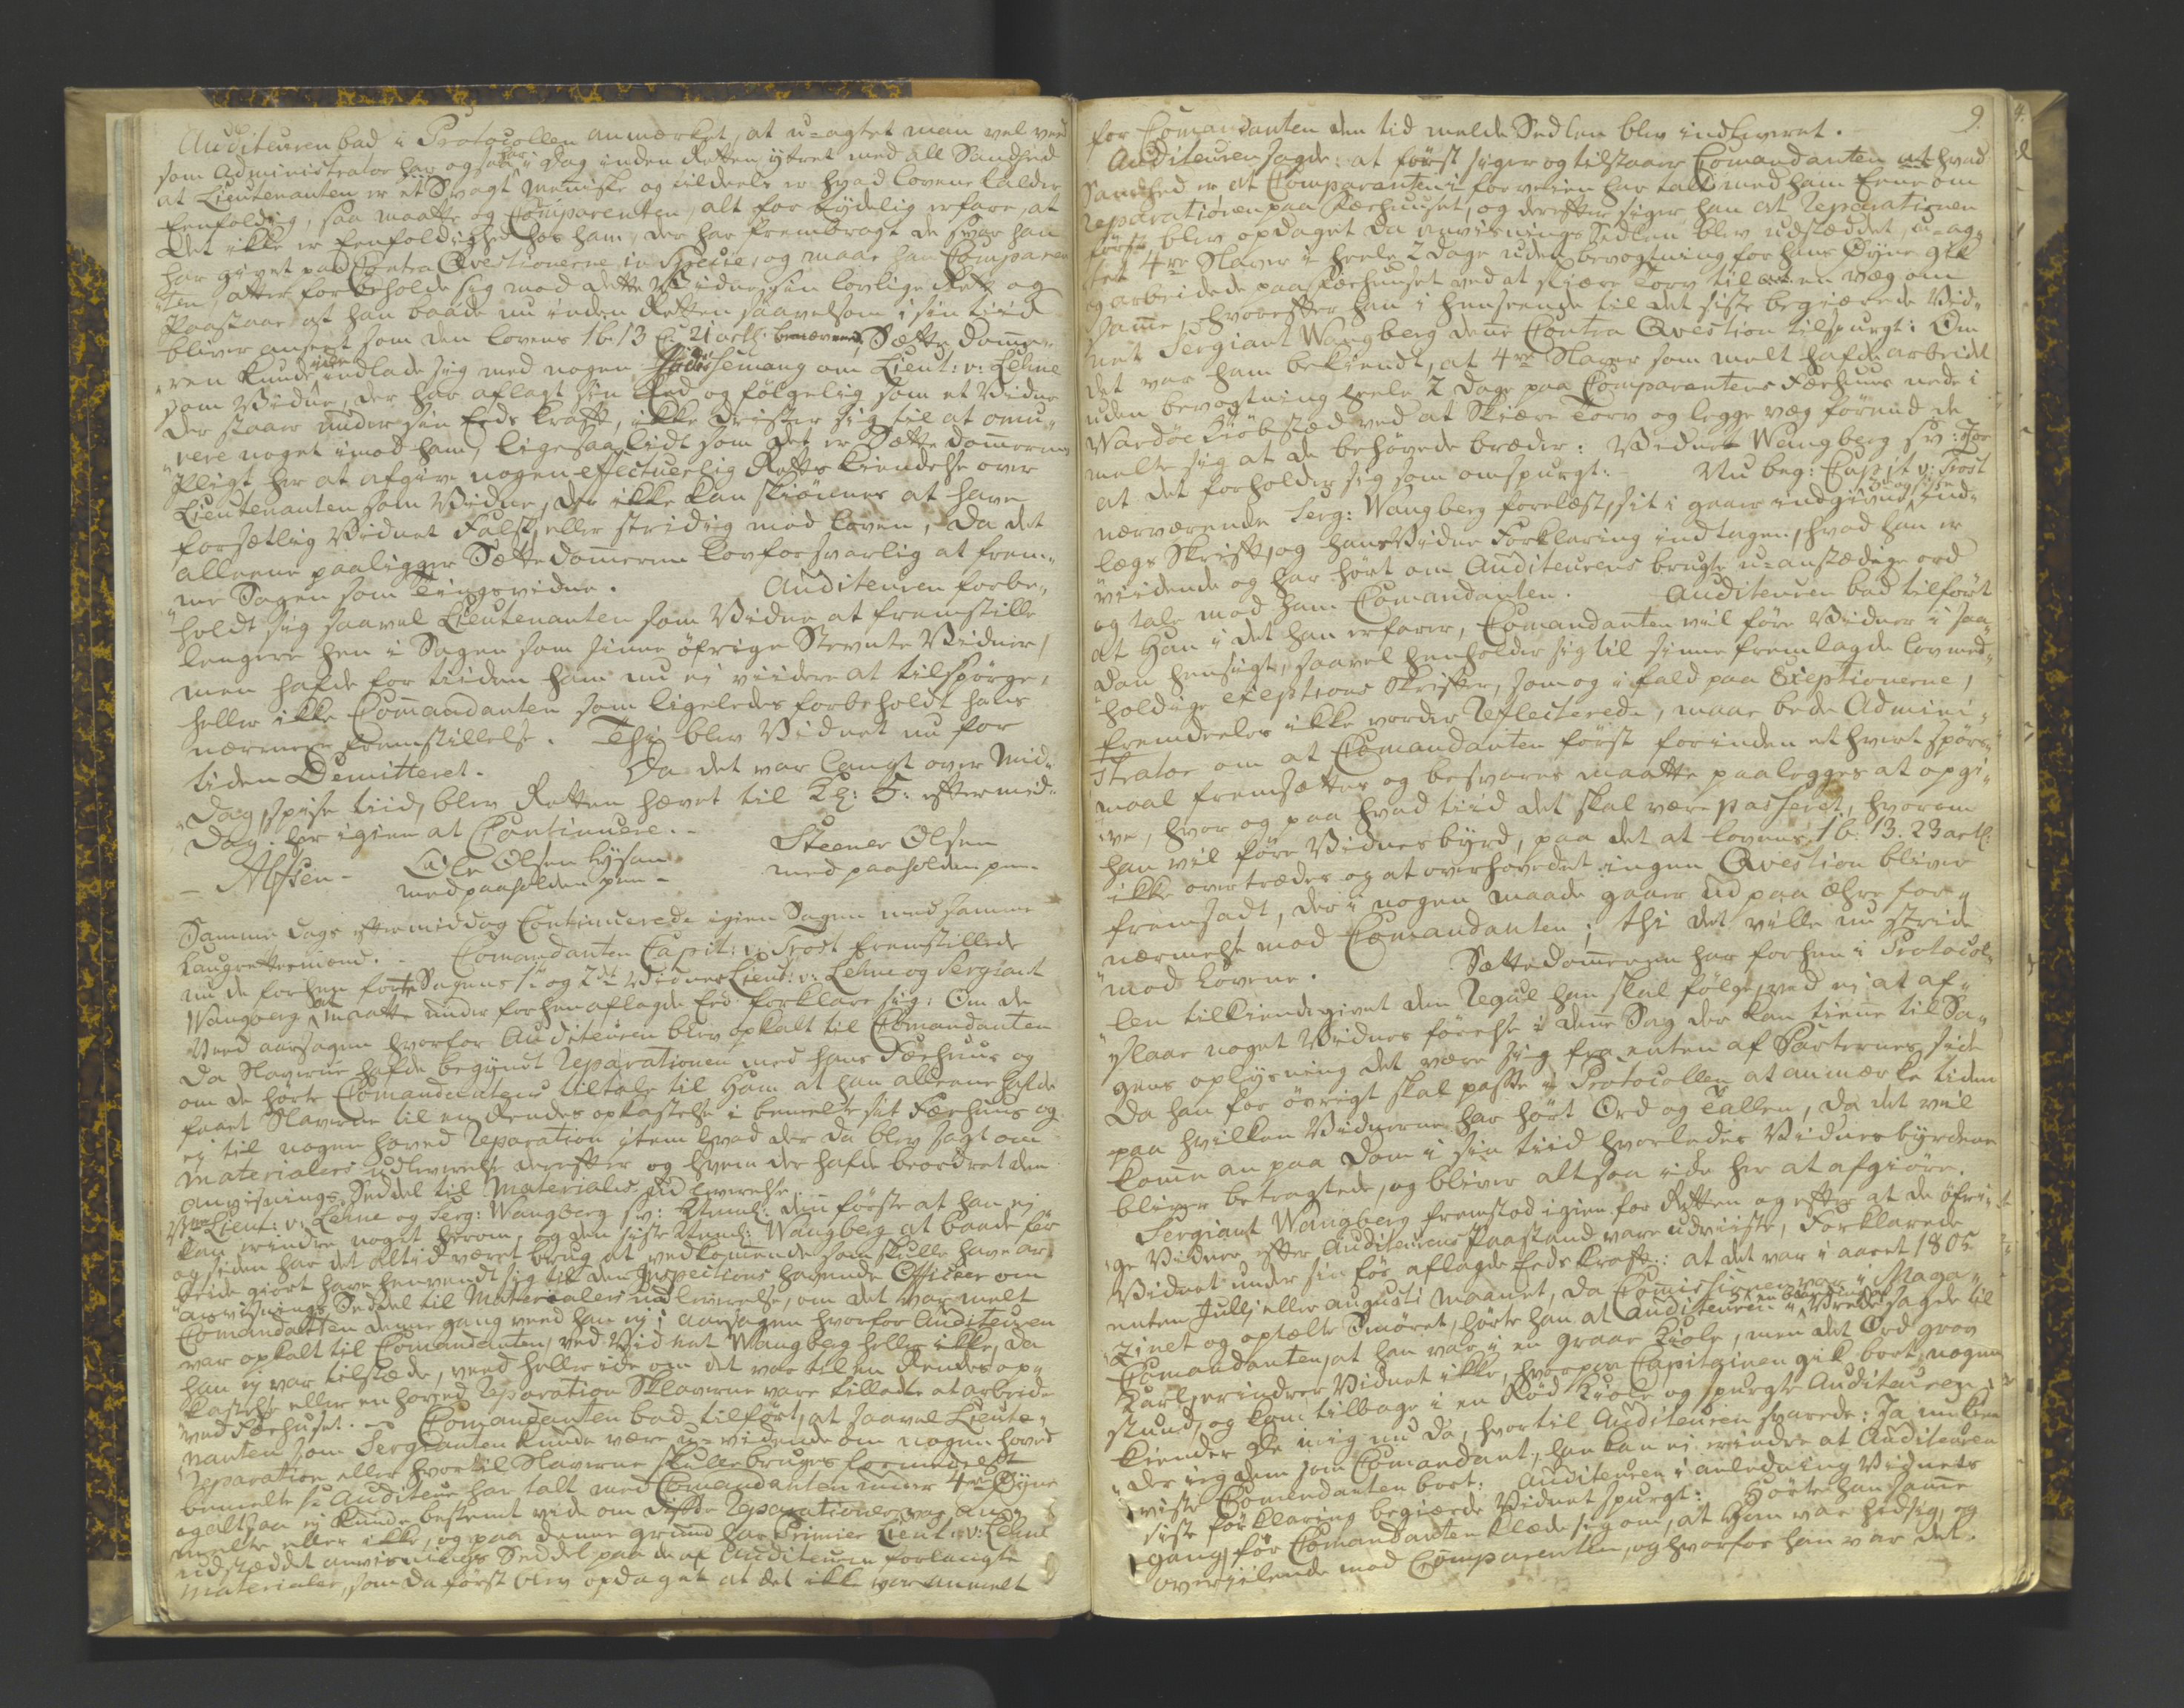 Auditeuren bad i Protocollen anmærket, at u-agtet man vel veed
som Administrator har ogsaa i dag inden Retten ÿtret med all Sandhed
at Lieutenanten er et Svagt Meniske og tildeels er hvad lovene kalder
Eenfoldig, saa maatte og Comparenten, alt for tÿdelig erfare, at
det ikke er Eenfoldighed hos ham, der har frembragt de svar han
har givet paa Contra Qvestionerne in Specie, og maae han Comparen
ten atter forbeholde sig mod dette Vidne sin lovlige Ret og
Paastaae at han baade nu inden Retten saavelsom i sin tiid
bliver anseet som den lovens 1b 13 C: 21 artl: benævner, Sætte Domme-
ren kunde ikke indlade sig med nogen om Lieut: v: Lehne
som Vidne, der har aflagt sin Eed og følgelig som et Vidne
der staar under sin Eeds kraft, ikke drister sig til at omu-
rere noget imod ham, ligesaa lidt som det er Sætte dommerens
Pligt her at afgive nogen effectuerlig Retts kiendelse over
Lieutenanten som Vidne, der ikke kan skiønnes at have
forsætlig Vidnet Falsk, eller stridig mod loven, da det
alleene paaligger Sætte dommeren lovforsvarlig at frem-
me Sagen som Tingsvidne. Auditeuren forbe-
holdt sig saavel Lieutenanten som Vidne at fremstille
lengere hen i Sagen som sinne øfrige Stevnte Vidner,
men hafde for tiiden ham nu ej viidere at tilspørge,
heller ikke Commandanten som ligeledes forbeholdt hans
nærmere fremstillelse. Thi blev Vidnet nu for
tiden Demitteret. Da det var langt over Mid-
dag spise tiid, blev Retten hævet til Kl: 5: eftermid-
dag. her igien at Continuere. -
Alfsen - Ole Olsen Steener Olsen
med paaholden pen - med paaholden pen -
Samme dags eftermiddag Continuerede igien Sagen med samme
Laugrettesmænd. - Comandanten Capit: v: Trost fremstillede
nu de forhen førte Sagens 1te og 2det Vidner Lieut: v: Lehne og Sergiant
Wangberg at maatte under forhen aflagde Eed forklare sig: Om de
Veed aarsagen hvorfor Auditeuren blev opkalt til Comandanten
da Slaverne hafde begÿndt Reparationen med hans Færhuus og
om de hørte Comandantens tiltale til Ham at han alleene hafde
faaet Slaverne til en Rendes opkastelse i bemelte sit Færhuus og
ej til nogen hoved Reparation item hvad der da blev sagt om
Materialiers udleverelse derefter og hvem der hafde beordret den
Anvisnings Seddel til Materialiers udleverelse.
Lieut: v: Lehne og Serg: Wangberg sv: den første at han ej
kan erindre noget herom, og den siste Wangberg at baade før
og siden har det altid været brug at vedkommende som skulle have ar-
beide giort have henvendt sig til den Inspections havende Officeer om
anvisnings Seddel til Materialiers udleverelse, om det var melt
Comandanten denne gang veed han ej; Aarsagen hvorfor Auditeuren
var opkalt til Comandanten, ved Vidnet Wangberg heller ikke, da
han ej var tilstæde, veed heller icke om det var til en Rendes op-
kastelse eller en hoved Reparation Sklaverne vare tilladte at arbeide
ved Færhuset. - Comandanten bad tilført, at saavel Lieute-
nanten som Sergianten kunde være u-vidende om nogen hoved
Reparation eller hvortil Slaverne skulle bruges formedelst
bemelte hr Auditeur har talt med Comandanten under 4re Øÿne
og altsaa ej kunde bestemt vide om disse Reparationer var an-
melte eller ikke, og paa denne grund har Premier Lieut: v: Lehne
udstæddet anvisnings Seddel paa de af Auditeuren forlangte
Materialier, som da først blev opdaget at det ikke var anmelt
9.
for Comandanten den tid melde Sedlen blev indleveret.
Auditeuren sagde: at først siger og tilstaaer Comandanten at hvad
Sandhed er at Comparenten i forveien har talt med ham Eene om
Reparationen paa Færhuuset, og derefter siger han at Reparationen
først blev opdaget da anvisnings Sedlen blev udstæddet, u-ag-
tet 4re Slaver i heele 2 dage uden bevogtning for hans Øÿne gik
og arbeidede paa Færhuuset ved at skiære Torv til en væg om
samme - hvorefter han i henseende til det siste begiærede Vid-
net Sergiant Wangberg denne Contra Qvestion tilspurgt: Om
det var ham bekiendt, at 4re Slaver som melt hafde arbeidet
uden bevogtning heele 2 dage paa Comparentens Færhuus nede i
Wardøe Kiøbstæd ved at Skiære Torv og legge væg førend de
melte sig at de behøvede bræder: Vidnet Wangberg sv: Jo
at det forholder sig som omspurgt: - Nu beg: Capit v: Trost
nærværende Serg: Wangberg forelæst, sit i gaar indgivne ind-
lægs Skrift, og hans Vidne Forklaring indtagen, hvad han er
viidende og har hørt om Auditeurens brugte u-anstædige ord
og tale mod ham Comandanten. Auditeuren bad tilført
at Han i det han erfarer, Comandanten vil føre Vidner i saa-
dan hensigt, saavel henholder sig til sinne fremlagde lovmed-
holdige exceptions Skrifter, som og i fald paa Exceptionerne,
fremdeeles ikke vorder Reflecterede, maae bede Admini-
strator om at Comandanten først forinden et hvert spørs-
maal fremsættes og besvares maatte paalegges at opgi-
ve, hvor og paa hvad tiid det skal være passeret, hvorom
han vil føre Vidnesbÿrd, paa det at lovens 1b: 13. 23 artl:
ikke overtrædes og at overhovedet ingen Qvestion bliver
fremsadt, der i nogen maade gaaer ud paa Ære for-
nærmelse mod Comandanten; thi det ville nu stride
mod Lovene. Sættedommeren har forhen i Protocol-
len tilkiendegivet den Regul han skal følge, ved ej at af-
slaae noget Vidnes førelse i denne Sag der kan tiene til Sa-
gens oplÿsning det være sig fra enten af Parternes side
da han for øvrigt skal passe i Protocollen at anmærke tiden
paa hvilken Vidnerne har hørt Ord og Tallen, da det vil
komme an paa Dom i sin tiid hvorledes Vidnesbÿrdene
bliver betragtede, og bliver altsaa icke her at afgiøre.
Sergiant Wangberg fremstod igien for Retten og efter at de øfri-
ge Vidner efter Auditeurens Paastand vare udviiste, Forklarede
Vidnet under sin før aflagde Eeds kraft: at det var i aaret 1805
enten Julj eller augusti Maanet, da Comissionen var i Maga-
zinet og optalte Smøret, hørte han at Auditeuren i Vrede sagde til
Comandanten, at han var i en graae Kiole, men det Ord grov
Karl, erindrer Vidnet ikke, hvorpaa Capitainen gik bort nogen
stund, og kom tilbage i en Rød Kiole og spurgte Auditeuren,
kiender De mig nu da, hvortil Auditeuren svarede: Ja nu kien-
der jeg dem som Comandant, han kan ej erindre at Auditeuren
viste Comandanten bort: Auditeuren i anledning Vidnets
siste forklaring begiærede Vidnet spurgt: Hørte han samme
gang, før Comandanten klæde sig om, at Han var hidsig, og
overiilende mod Comparenten, og hvorfor han var det.